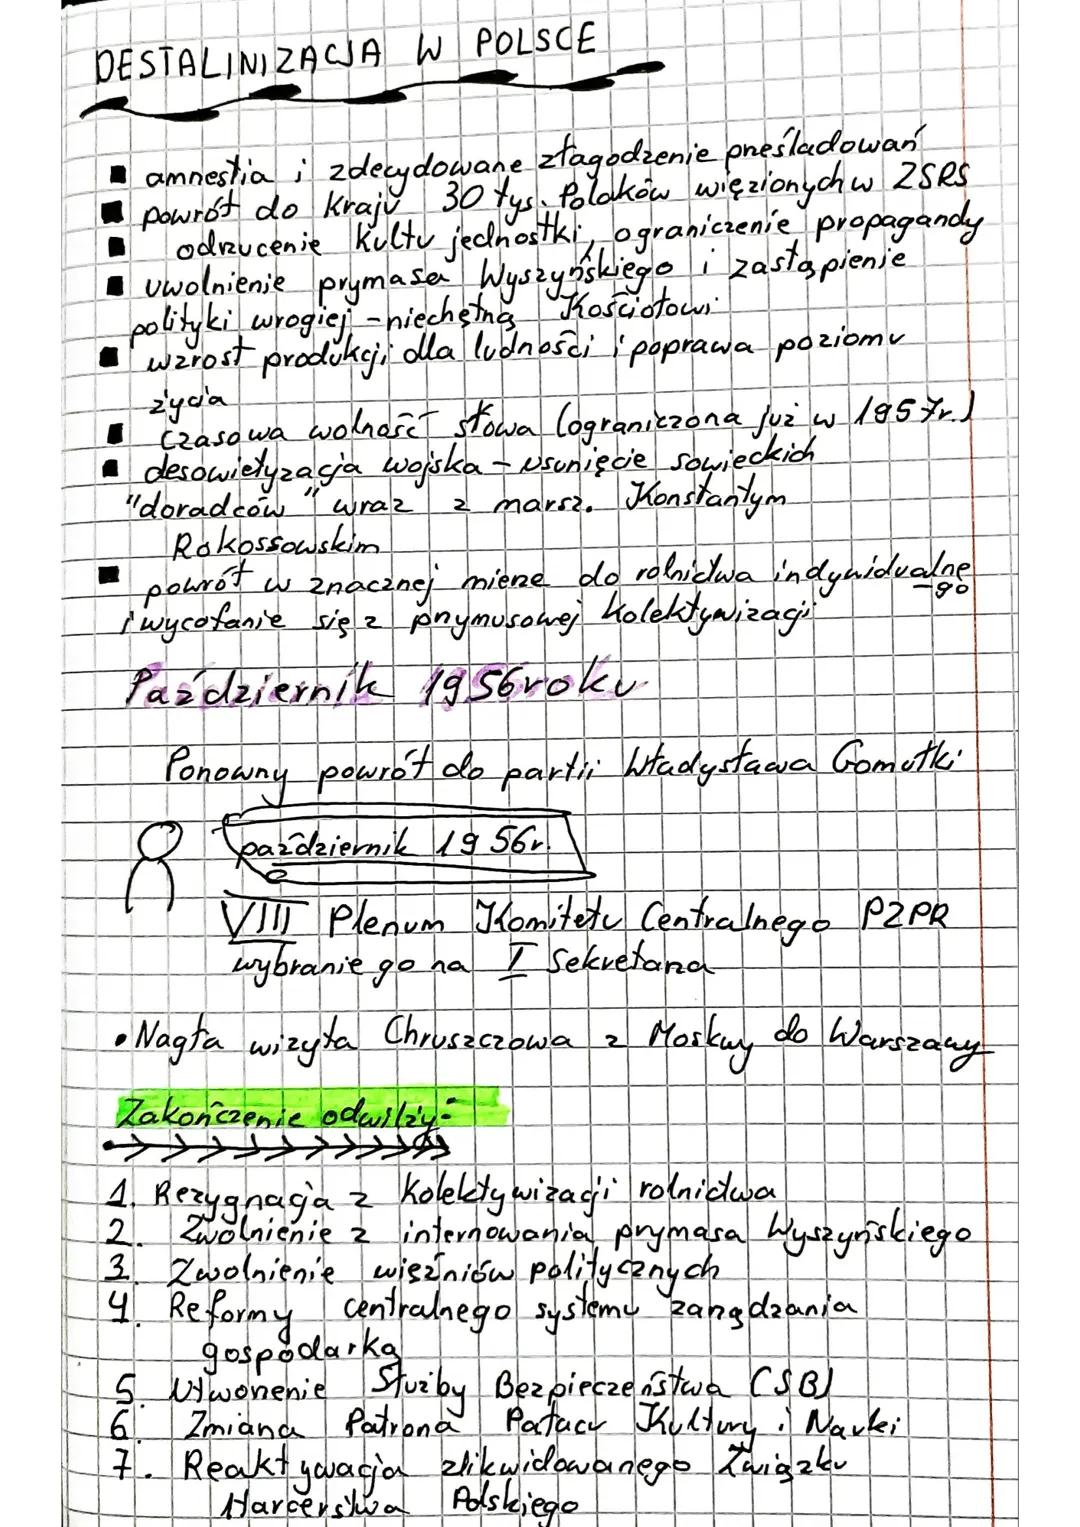 DESTALINIZACJA W POLSCE
▪ amnestia i zdecydowane złagodzenie prześladowań
▪ powrót do kraju 30 tys. Polaków więzionych w ZSRS
▪ odrzucenie kultu jednostki, ograniczenie propagandy
▪ uwolnienie prymasa Wyszyńskiego i zastąpienie
polityki wrogiej - niechętną Kościołowi
▪ wzrost produkcji dla ludności i poprawa poziomu
życia
▪ czasowa wolność słowa (ograniczona już w 1957r.)
▪ desowietyzacja wojska - usunięcie sowieckich
"doradców" wraz z marsz. Konstantym
Rokossowskim
▪ powrót w znacznej mierze do rolnictwa indywidualne
-go
i wycofanie się z przymusowej kolektywizacji
Październik 1956 roku
Ponowny powrót do partii Władysława Gomułki
październik 1956r.
VIII Plenum Komitetu Centralnego PZPR
wybranie go na I Sekretarza
• Nagła wizyta Chruszczowa z Moskwy do Warszawy
Zakończenie odwilży:
1. Rezygnacja z kolektywizacji rolnictwa
2. Zwolnienie z internowania prymasa Wyszyńskiego
3. Zwolnienie więźniów politycznych
4. Reformy centralnego systemu zarządzania
gospodarką
5. Utworzenie Służby Bezpieczeństwa (SB)
6. Zmiana Patrona Pałacu Kultury i Nauki
7. Reaktywacja zlikwidowanego Związku
Harcerstwa Polskiego